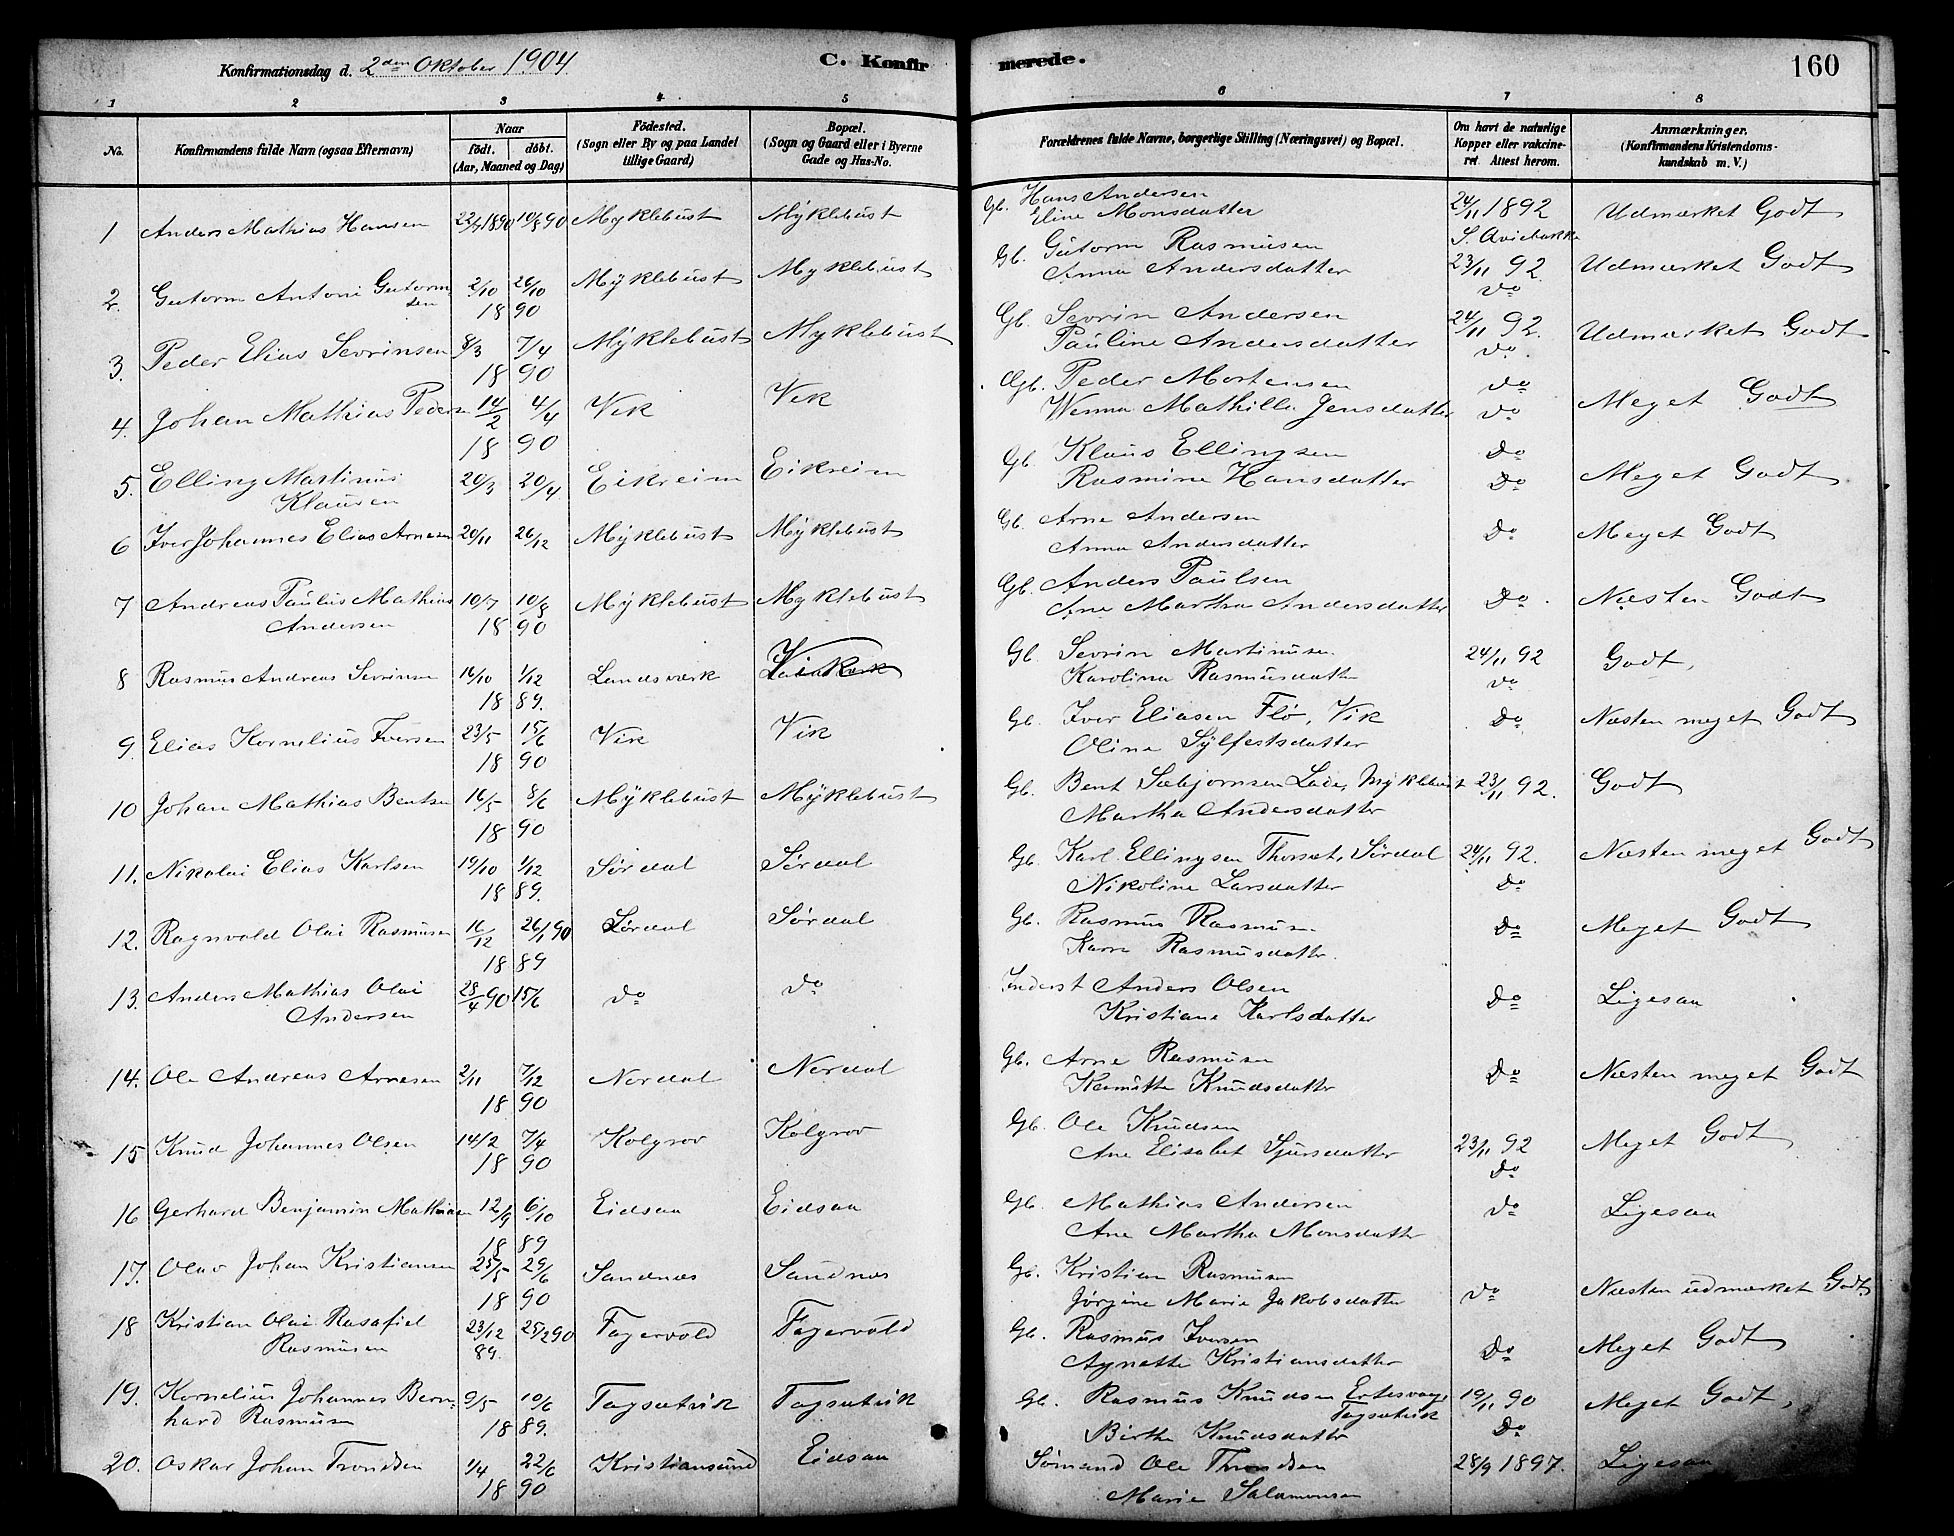 Konfirmationsdag d. 2den Oktober 1904. C. Konfirmerede. 160
1 2 3 4 5 6 7 8
No. Konfirmandens fulde Navn (ogsaa Efternavn) Naar født. døbt. (Aar, Maaned og Dag) Fødested. (Sogn eller By og paa Landet tillige Gaard) Bopæl. (Sogn og Gaard eller i Byerne Gade og Hus-No. Forældrenes fulde Navne, borgerlige Stilling (Næringsvei) og Bopæl. Om havt de naturlige Kopper eller vakcineret. Attest herom. Anmærkninger. (Konfirmandens Kristendomskundskab m. V.)
1 Anders Mathias Hansen 22/7 1890 10/8 90 Myklebust Myklebust Gb. Hans Andersen 24/11 1892 Udmærket Godt
Eline Monsdatter
2. Gutorm Antoni Gutormsen 2/10 26/10 1890 Myklebust Myklebust Gb. Gutorm Rasmusen 23/11 92. Udmærket Godt
Anna Andersdatter do
3. Peder Elias Sevrinsen 8/3 7/4 1890 Myklebust Myklebust Gb. Sevrin Andersen 24/11 92. Udmærket Godt
Pauline Andersdatter do.
4. Johan Mathias Pedersen 14/2 4/4 1890 Vik Vik Gb. Peder Mortensen do Meget Godt
Wenna Mathilla Jensdatter do
5. Elling Martinus Klausen 20/3 20/4 Eikreim Eikreim Gb. Klaus Ellingsen do Meget Godt
Rasmine Hansdatter do
6 Iver Johannes Elias Arnesen 20/11 26/12 Myklebust Myklebust Gb. Arne Andersen do Meget Godt
Anna Andersdatter
7 Andreas Paulus Mathias Andersen 10/7 10/8 1890 Myklebust Myklebust Gb. Anders Paulsen do. Næsten Godt
Ane Martha Andersdatter
8 Rasmus Andreas Sevrinsen 16/10 1/12 1889. Landsværk Vik Gb. Sevrin Martinusen 24/11 92 Godt,
Karolina Rasmusdatter do
9. Elias Kornelius Iversen 23/5 15/6 1890 Vik Vik Gb. Iver Eliasen Flö, Vik do. Næsten meget Godt
Oline Sylfestsdatter
10 Johan Mathias Bentsen 16/5 8/6 1890 Myklebust Myklebust Gb. Bent Sæbjørnsen Lade, Myklebust 23/11 92. Godt
Martha Andersdatter
11. Nikolai Elias Karlsen 19/10 1/12 1889. Sørdal Sørdal Gb. Karl Ellingsen Thorsæt, Sørdal 24/11 92. Næsten meget Godt
Nikoline Larsdatter do
12. Ragnvald Olai Rasmusen 16/12 26/1 90 1889 Sørdal Sørdal Gb. Rasmus Rasmusen do Meget Godt
Karen Rasmusdatter.
13. Anders Mathias Olai Andersen 28/4 90 15/6 do do Inderst Anders Olsen do Ligesaa
Kristiane Karlsdatter
14. Ole Andreas Arnesen 2/11 7/12 1890 Nordal Nordal Gb. Arne Rasmusen do Næsten meget Godt
Knudsdatter
15 Knud Johannes Olsen 14/2 7/4 1890 Kolgrov Kolgrov Gb. Ole Knudsen 23/11 92 Meget Godt
Ane Elisabet Sjursdatter do
16 Gerhard Benjamin Mathiasen 12/9 6/10 1889 Eidsaa Eidsaa Gb. Mathias Andersen do Ligesaa
Ane Martha Monsdatter
17. Olav Johan Kristiansen 25/5 29/6 1890 Sandnæs Sandnæs Gb. Kristian Rasmusen do Næsten udmærket Godt
Jørgine Marie Jakobsdatter
18 Kristian Olai Rasafiel Rasmusen 23/12 89. 25/2 90 Fagervold Fagervold Gb. Rasmus Iversen do Meget Godt
Agnette Kristiansdatter
19. Kornelius Johannes Bernhard Rasmusen 9/5 10/6 1889. Tagsætvik Tagsætvik Gb. Rasmus Knudsen Ertesvaag, Tagsætvik 19/11 90 Meget Godt,
Birthe Knudsdatter do
20. Oskar Johan Trondsen 1/4 22/6 1890 Kristiansund Eidsaa Sømand Ole Throndsen 28/9 1897. Ligesaa
Marie Salamonsen